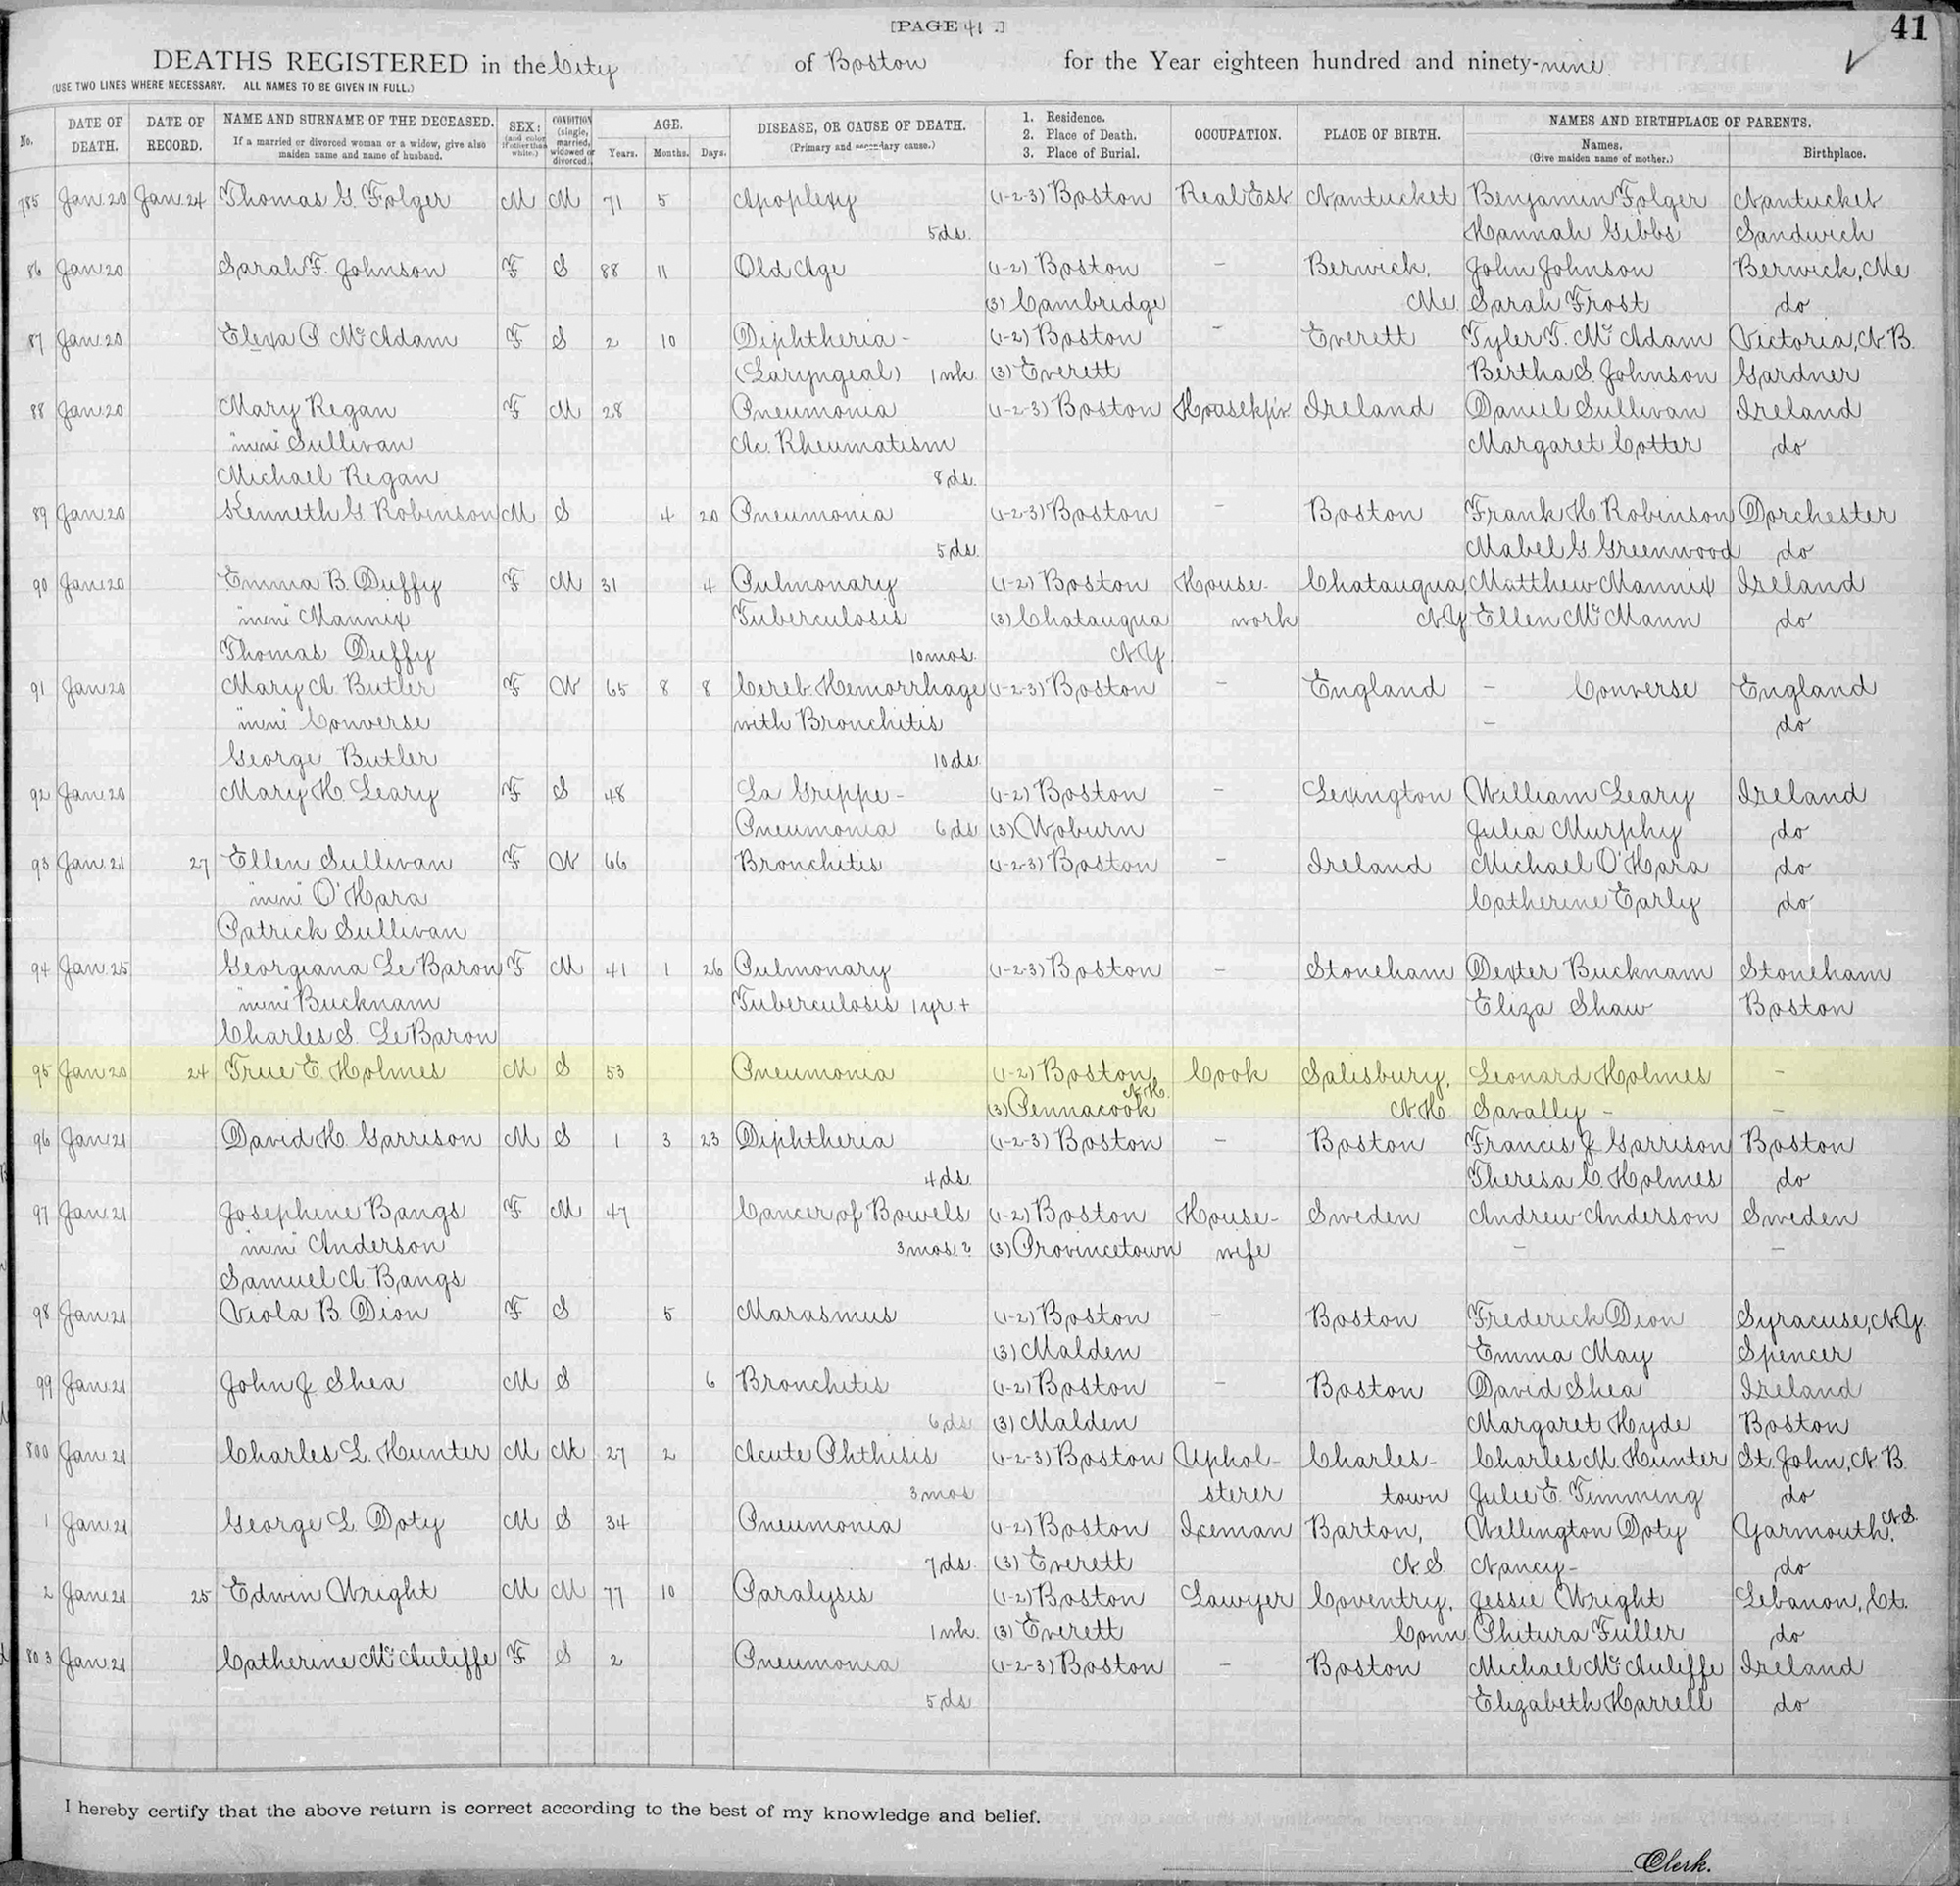 [PAGE 41.]
41
DEATHS REGISTERED in the City of Boston for the Year eighteen hundred and ninety-nine
(USE TWO LINES WHERE NECESSARY. ALL NAMES TO BE GIVEN IN FULL.)
No. DATE OF DEATH. DATE OF RECORD. NAME AND SURNAME OF THE DECEASED. If a married or divorced woman or a widow, give also maiden name and name of husband. SEX: (and color if other than white.) CONDITION (single, married, widowed or divorced.) AGE. Years. Months. Days. DISEASE, OR CAUSE OF DEATH. (Primary and secondary cause.) 1. Residence. 2. Place of Death. 3. Place of Burial. OCCUPATION. PLACE OF BIRTH. NAMES AND BIRTHPLACE OF PARENTS. Names. (Give maiden name of mother.) Birthplace.
785 Jan. 20 Jan. 24 Thomas G. Folger M M 71 5 Apoplexy (1-2-3) Boston Real Est Nantucket Benjamin Folger Nantucket
5 ds. Hannah Gibbs Sandwich
86 Jan 20 Sarah F. Johnson F S 88 11 Old Age (1-2) Boston - Berwick, John Johnson Berwick, Me
(3) Cambridge Me. Sarah Frost do
87 Jan. 20 Elexa P. McAdam F S 2 10 Diphtheria - (1-2) Boston - Everett Tyler T. McAdam Victoria, N.B.
(Laryngeal) 1 wk. (3) Everett Bertha S. Johnson Gardner
88 Jan. 20 Mary Regan F M 28 Pneumonia (1-2-3) Boston Housekp'r Ireland Daniel Sullivan Ireland
Sullivan Ac. Rheumatism Margaret Cotter do
Michael Regan 8 ds.
89 Jan. 20 Kenneth G. Robinson M S 4 20 Pneumonia (1-2-3) Boston - Boston Frank H. Robinson Dorchester
5 ds. Mabel G Greenwood do
90 Jan. 20 Emma B. Duffy F M 31 4 Pulmonary (1-2) Boston House- Chatauqua, Matthew Mannix Ireland
Mannix Tuberculosis (3) Chatauqua work N.Y. Ellen McMann do
Thomas Duffy 10 mos. N.Y.
91 Jan. 20 Mary A. Butler F W 65 8 8 Cereb. Hemorrhage (1-2-3) Boston - England - Converse England
Converse with Bronchitis - do
George Butler 10 ds.
92 Jan. 20 Mary H. Leary F S 48 La Grippe - (1-2) Boston - Lexington William Leary Ireland
Pneumonia 6 ds (3) Woburn Julia Murphy do
93 Jan. 21 27 Ellen Sullivan F W 66 Bronchitis (1-2-3) Boston - Ireland Michael O'Hara do
O'Hara Catherine Early do
Patrick Sullivan
94 Jan. 25 Georgiana LeBaron F M 41 1 26 Pulmonary (1-2-3) Boston - Stoneham Dexter Bucknam Stoneham
Bucknam Tuberculosis 1 yr. + Eliza Shaw Boston
Charles S. LeBaron
95 Jan 20 24 True E. Holmes M S 53 Pneumonia (1-2) Boston Cook Salisbury, Leonard Holmes -
(3) Pennacook N.H. N.H. Savally - -
96 Jan. 21 David H. Garrison M S 1 3 23 Diphtheria (1-2-3) Boston - Boston Francis J Garrison Boston
4 ds. Theresa C. Holmes do
97 Jan. 21 Josephine Bangs F M 47 Cancer of Bowels (1-2) Boston House- Sweden Andrew Anderson Sweden
Anderson 3 mos. ? (3) Provincetown wife - -
Samuel A. Bangs
98 Jan. 21 Viola B. Dion F S 5 Marasmus (1-2) Boston - Boston Frederick Dion Syracuse, N.Y.
(3) Malden Emma May Spencer
99 Jan. 21 John J Shea M S 6 Bronchitis (1-2) Boston - Boston David Shea Ireland
6 ds (3) Malden Margaret Hyde Boston
800 Jan. 21 Charles L. Hunter M M 27 2 Acute Phthisis (1-2-3) Boston Uphol- Charles- Charles M. Hunter St. John, N.B.
3 mos sterer town Julie E. Timming do
1 Jan. 21 George L. Doty M S 34 Pneumonia (1-2) Boston Iceman Barton, Wellington Doty Yarmouth, N.S.
7 ds. (3) Everett N.S. Nancy - do
2 Jan. 21 25 Edwin Wright M M 77 10 Paralysis (1-2) Boston Lawyer Coventry, Jessie Wright Lebanon, Ct.
1 wk. (3) Everett Conn. Phitura Fuller do
803 Jan. 21 Catherine McAuliffe F S 2 Pneumonia (1-2-3) Boston - Boston Michael McAuliffe Ireland
5 ds Elizabeth Harrell do
I hereby certify that the above return is correct according to the best of my knowledge and belief.
Clerk.